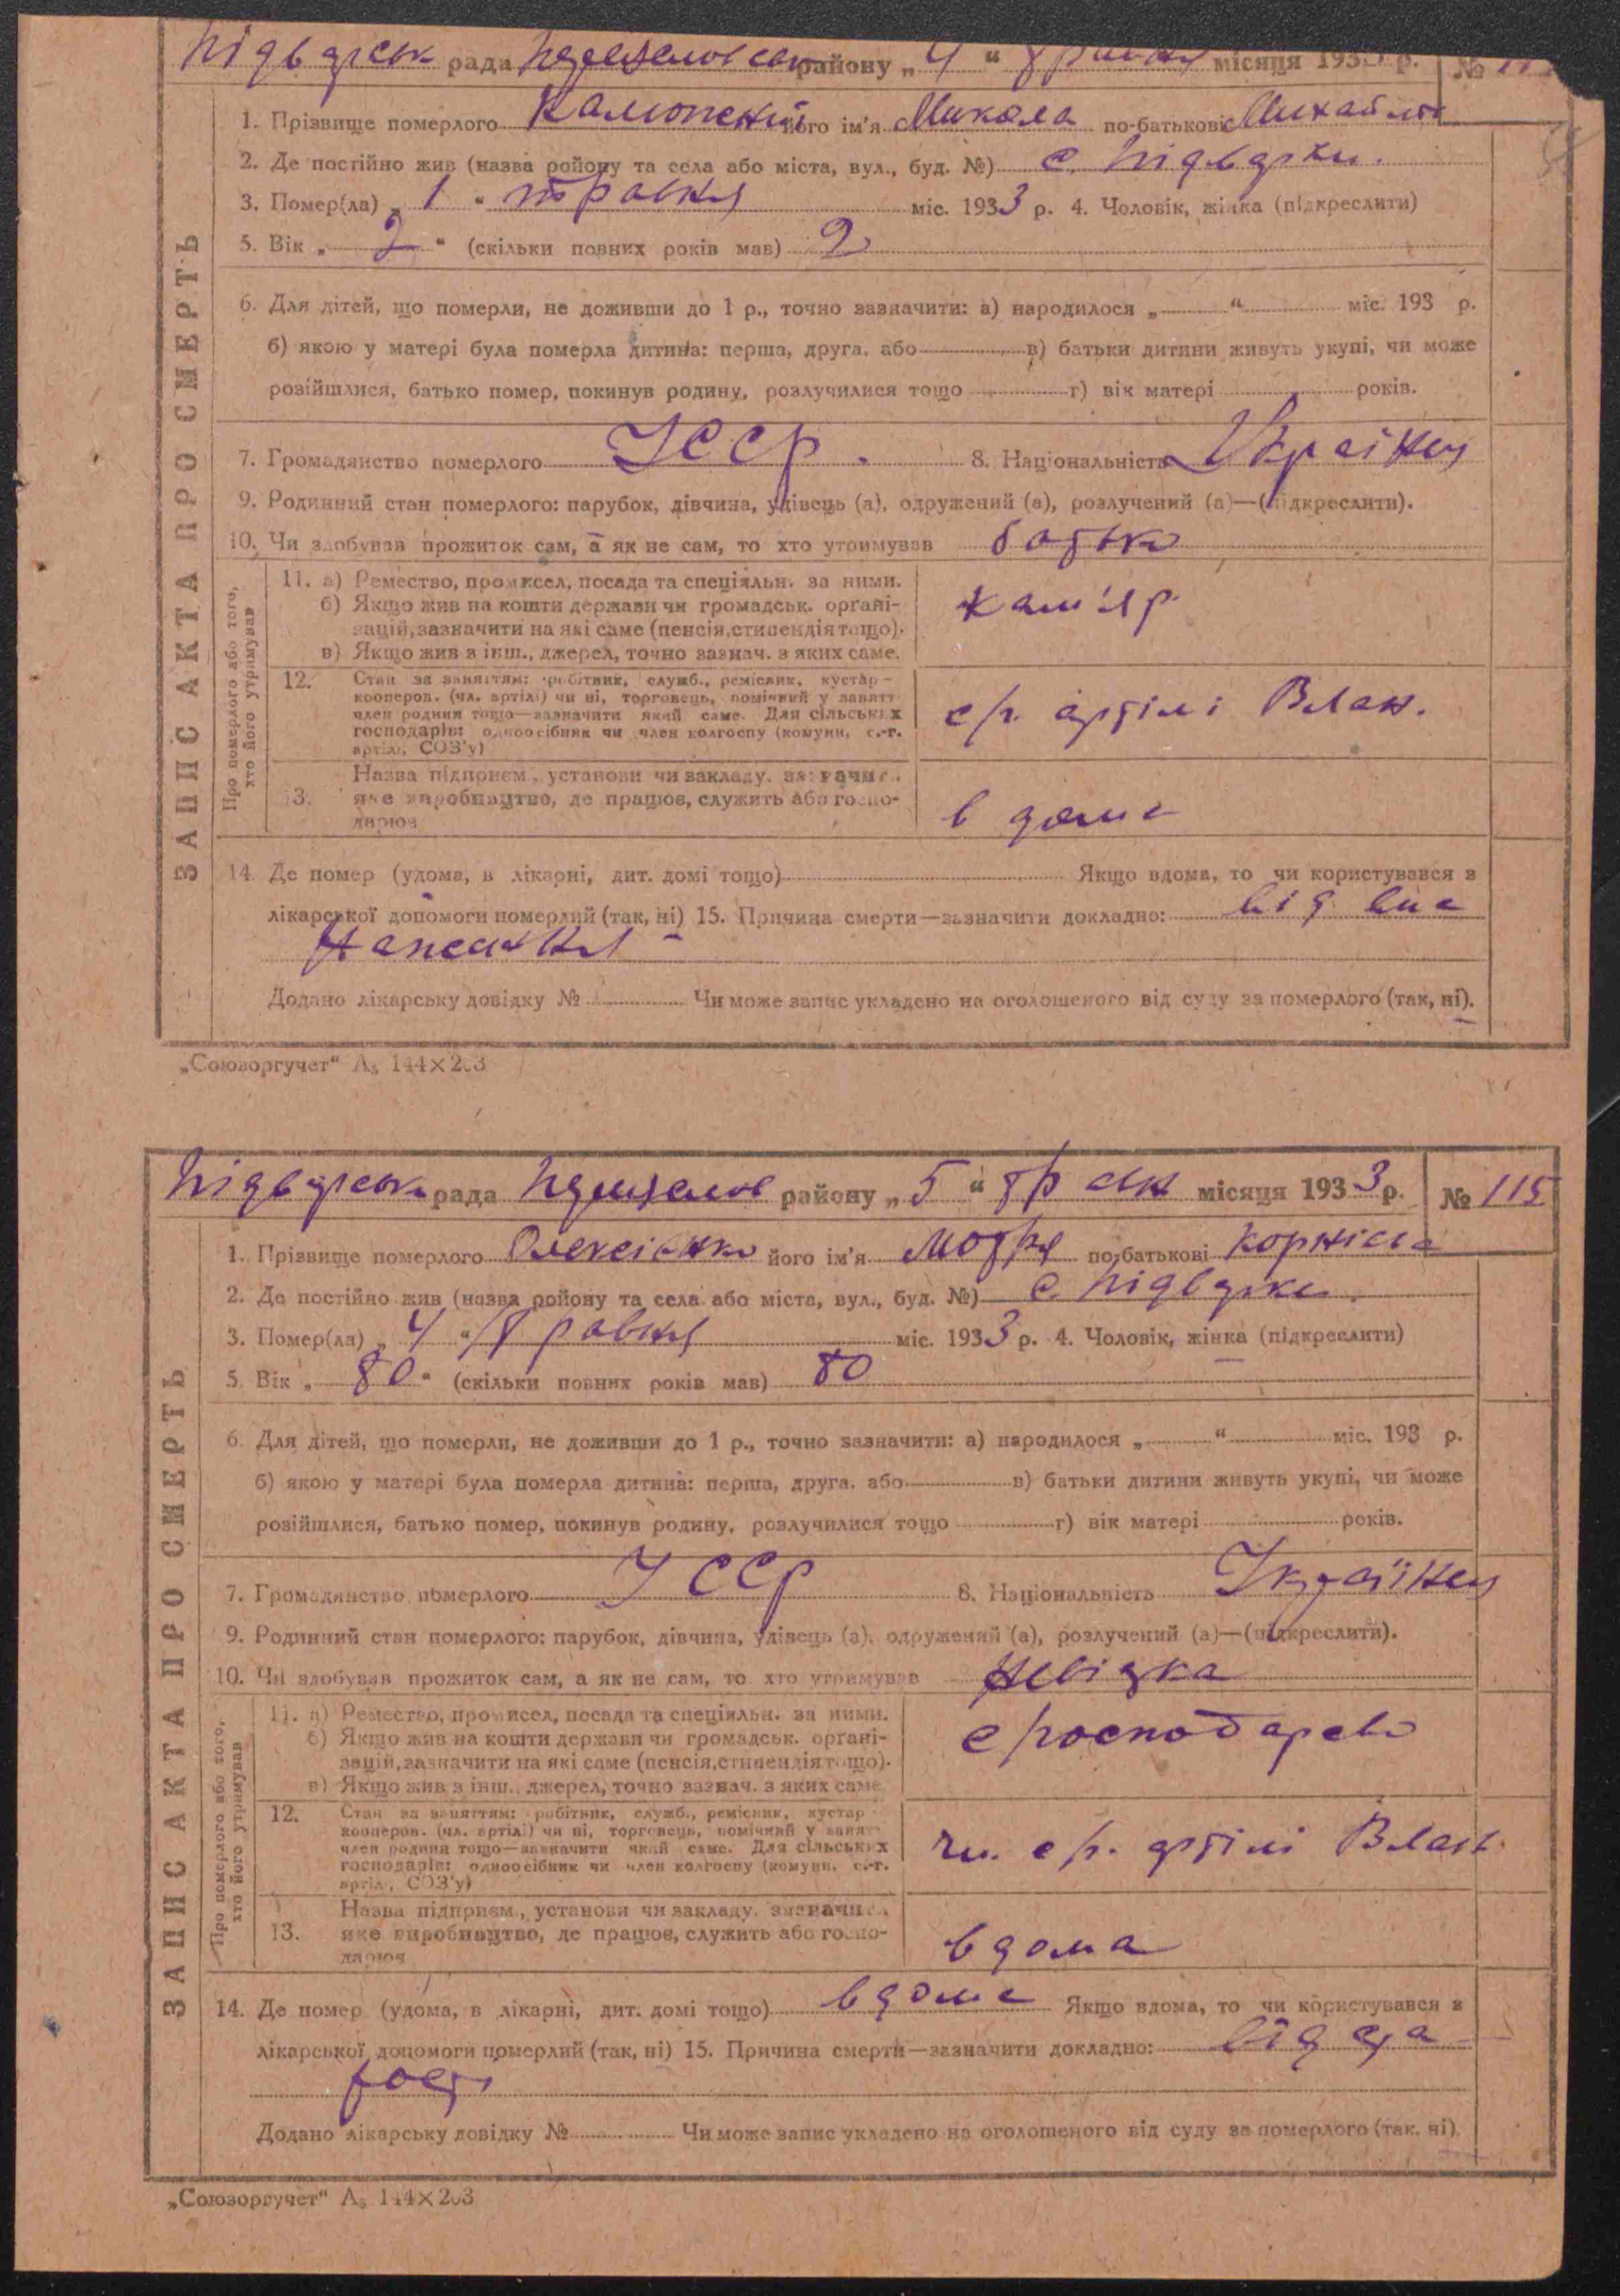 Підварськ рада району „4“ травня місяця 1933 р. №
1. Прізвище померлого його ім'я Микола по-батькові Михайлов
2. Де постійно жив (назва району та села або міста, вул., буд. №) с. Підварки.
3. Помер(ла) „1“ травня міс. 1933 р. 4. Чоловік, жінка (підкреслити)
5. Вік „2“ (скільки повних років мав) 2
6. Для дітей, що померли, не доживши до 1 р., точно зазначити: а) народилося „ “ міс. 193 р.
б) якою у матері була померла дитина: перша, друга, або в) батьки дитини живуть укупі, чи може
розійшлися, батько помер, покинув родину, розлучилися тощо г) вік матері років.
7. Громадянство померлого УССР. 8. Національність Українец
9. Родинний стан померлого: парубок, дівчина, удівець (а), одружений (а), розлучений (а)—(підкреслити).
10. Чи здобував прожиток сам, а як не сам, то хто утримував батько
Про померлого або того, хто його утримував
11. а) Ремество, промисел, посада та спеціяльн. за ними.
б) Якщо жив на кошти держави чи громадськ. органі-
зацій, зазначити на які саме (пенсія, стипендія тощо).
в) Якщо жив з інш., джерел, точно зазнач. з яких саме.
кам'яр
12. Стан за заняттям: робітник, служб., ремісник, кустар-
кооперов. (чл. артілі) чи ні, торговець, помічний у занятт
член родини тощо—зазначити який саме. Для сільських
господарів: одноосібник чи член колгоспу (комуни, с.-г.
артілі, СОЗ'у)
с/г. артілі Влан.
13. Назва підприєм., установи чи закладу, зазначи
яке виробництво, де працює, служить або госпо-
дарює
в дома
14. Де помер (удома, в лікарні, дит. домі тощо) Якщо вдома, то чи користувався з
лікарської допомоги померлий (так, ні) 15. Причина смерти—зазначити докладно: від
Додано лікарську довідку № Чи може запис укладено на оголошеного від суду за померлого (так, ні).
ЗАПИС АКТА ПРО СМЕРТЬ
„Союзоргучет“ А₅ 144×203
Підварськ рада району „5“ місяця 1933 р. № 115
1. Прізвище померлого Олексієнко його ім'я Мотря по-батькові Корніївна
2. Де постійно жив (назва району та села або міста, вул., буд. №) с. Підварки.
3. Помер(ла) „4“ травня міс. 1933 р. 4. Чоловік, жінка (підкреслити)
5. Вік „80“ (скільки повних років мав) 80
6. Для дітей, що померли, не доживши до 1 р., точно зазначити: а) народилося „ “ міс. 193 р.
б) якою у матері була померла дитина: перша, друга, або в) батьки дитини живуть укупі, чи може
розійшлися, батько помер, покинув родину, розлучилися тощо г) вік матері років.
7. Громадянство померлого УССР 8. Національність Українец
9. Родинний стан померлого: парубок, дівчина, удівець (а), одружений (а), розлучений (а)—(підкреслити).
10. Чи здобував прожиток сам, а як не сам, то хто утримував невістка
Про померлого або того, хто його утримував
11. а) Ремество, промисел, посада та спеціяльн. за ними.
б) Якщо жив на кошти держави чи громадськ. органі-
зацій, зазначити на які саме (пенсія, стипендія тощо).
в) Якщо жив з інш., джерел, точно зазнач. з яких саме
с/господарство
12. Стан за заняттям: робітник, служб., ремісник, кустар
кооперов. (чл. артілі) чи ні, торговець, помічний у занятт
член родини тощо—зазначити який саме. Для сільських
господарів: одноосібник чи член колгоспу (комуни, с.-г.
артілі, СОЗ'у)
чл. с/г. артілі Влан.
13. Назва підприєм., установи чи закладу, зазначи
яке виробництво, де працює, служить або госпо-
дарює
вдома
14. Де помер (удома, в лікарні, дит. домі тощо) вдома Якщо вдома, то чи користувався з
лікарської допомоги померлий (так, ні) 15. Причина смерти—зазначити докладно: від ста
рости
Додано лікарську довідку № Чи може запис укладено на оголошеного від суду за померлого (так, ні).
ЗАПИС АКТА ПРО СМЕРТЬ
„Союзоргучет“ А₅ 144×203